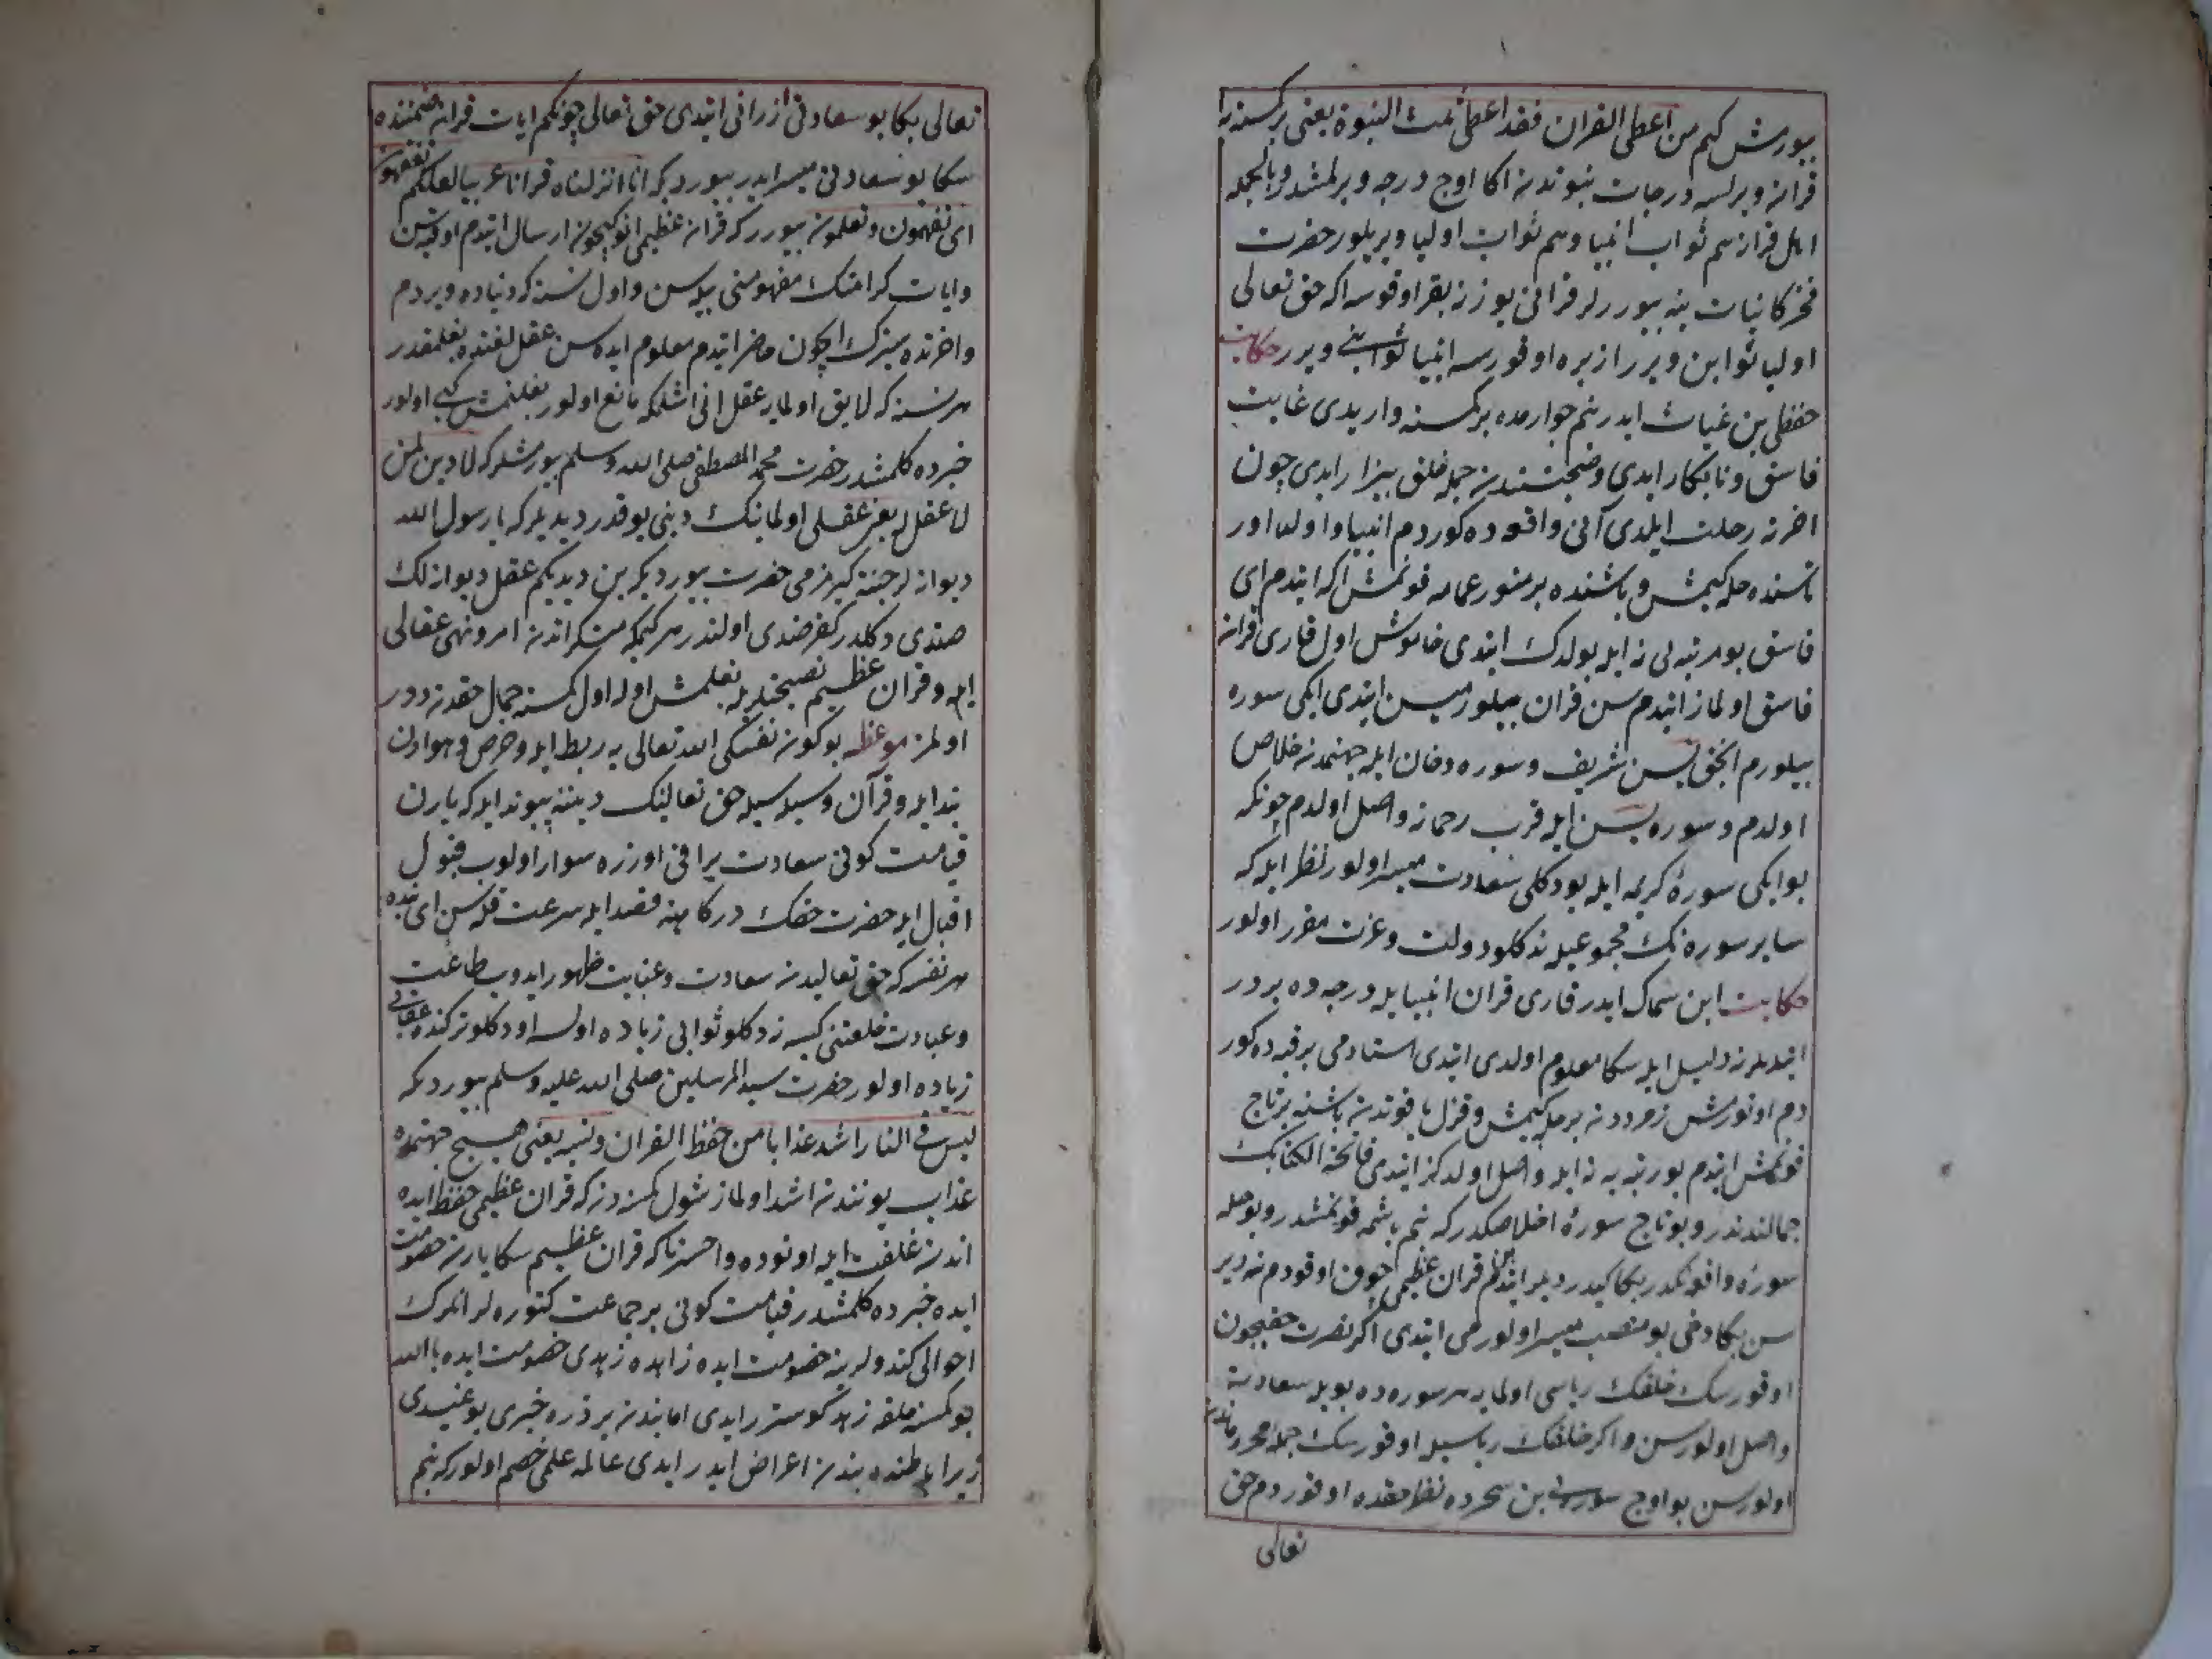 بیورمش کیم من اعطی القران فقد اعطی ثلث النبوة یعنی بر کسنه یه
قرانه ویرلسه درجات نبوتدنه اکا اوج درجه ویرلمشدر وبالجمله
اهل قرانه هم ثواب انبیا وهم ثواب اولیا ویریلور حضرت
فخر کائنات ینه بیوررلر قرانی یوزنه بقر اوقوسه اکه حق تعالی
اولیا ثوابن ویرر ازبره اوقورسه انبیا ثوابنی ویرر حکایت
حفظلی بن غیاث ایدر بنم جوارمده بر کسنه واریدی غایت
فاسق ونابکار ایدی وصحبتندنه جمله خلق بیزار ایدی چون
اخرته رحلت ایلدی آنی واقعه ده کوردم انبیا واولیا اور
تاسنده حله کیمش وباشنده بر منور عمامه قونمش اکه ایتدم ای
فاسق بو مرتبه لی نه ایله بولدك ایتدی خاموش اول قاری قرانه
فاسق اولماز ایتدم سن قران بیلورمیسن ایتدی ایکی سوره
بیلورم انجق یسن شریف وسوره دخان ایله جهنمدنه خلاص
اولدم وسوره یسن ایله قرب رحمانه واصل اولدم چونکه
بو ایکی سورۀ کریمه ایله بو دکلی سعادت میسر اولور نظر ایله که
سایر سوره نك مجموعیله نه دکلو دولت وعزت مقرر اولور
حکایت ابن سماك ایدر قاری قران انبیا ایله درجه ده بردر
ایتدیلر نه دلیل ایله سکا معلوم اولدی ایتدی استادمی بر قبه ده کور
دم اوتورمش زمرددنه بر حله کیمش وقزل یاقوتدنه باشنه بر تاج
قونمش ایتدم بو رتبه یه نه ایله واصل اولدکز ایتدی فاتحة الکتابك
جمالندندر وبو تاج سورۀ اخلاصکدر که بنم باشمه قونمشدر وبو حله
سورۀ واقعه نکدر بکا کیدردیلر ایتدم بن قران عظیمی چوق اوقودم نه دیر
سن بکا دخی بو منصب میسر اولورمی ایتدی اکر نصرت حقیچون
اوقورسك خلقك ریاسی اولمایه هر سوره ده بویله سعادته
واصل اولورسن واکر خلقك ریاسیله اوقورسك جمله محروماندن
اولورسن بو اوج سوره یی بن سحرده نظر حقده اوقوردم حق
تعالی
تعالی بکا بو سعادتی ازرانی ایتدی حق تعالی چونکم ایات قرانه ضمننده
سکا بو سعادتی میسر ایدر بیوردیکه انا انزلناه قرانا عربیا لعلکم تعقلون
ای تفهمون وتعلمونه بیوررکه قرانه عظیمی انوکیچونه ارسال ایتدم اوقیه سن
وایات کرامنك مفهومنی بیله سن واول نسنه که دنیاده ویردم
واخرتده سزك ایچون حاضر ایتدم معلوم ایده سن عقل لغتده بغلمقدر
هر نسنه که لایق اولمایه عقل انی اشلمکه مانع اولور بغلنمش کبی اولور
خبرده کلمشدر حضرت محمد المصطفی صلی الله وسلم بیورمشدر که لا دین لمن
لا عقل له یعنی عقلی اولمایانك دینی یوقدر دیدیلرکه یا رسول الله
دیوانه لر جنته کیرمزمی حضرت بیوردیکه بن دیدیکم عقل دیوانه لك
ضدی دکلدر کفر ضدی اولندر هر کیمکه منکراتدنه امر ونهی عقالی
ایله وقران عظیم نصیحتیله بغلمش اوله اول کسنه جمال حقدنه دور
اولمز موعظه بو کونه نفسکی الله تعالی یه ربط ایله وحرص وهوادن
بند ایله وقرآن وسیله سیله حق تعالینك دیننه پیوند ایله که یارن
قیامت کونی سعادت براقی اوزره سوار اولوب قبول
اقبال ایله حضرت حقك درکاهنه قصد ایله سرعت قله سن ای بنده
هر نفس که حق تعالیدنه سعادت وعنایت ظهور ایدوب طاعت
وعبادت خلعتنی کیسه نه دکلو ثوابی زیاده اولسه اودکلو ترکنده عقابی
زیاده اولور حضرت سید المرسلین صلی الله علیه وسلم بیوردیکه
لیس فی النار اشد عذابا من حفظ القران ونسیه یعنی هیچ جهنمده
عذاب یوندنه اشد اولماز شول کسنه دنه که قران عظیمی حفظ ایده
اندنه غلفت ایله اونوده واحسرتا که قران عظیم سکا یارنه خصومت
ایده خبرده کلمشدر قیامت کونی بر جماعت کتوره لر انلرك
احوالی کندولرینه خصومت ایده زاهده زهدی خصومت ایده یا الله
بو کسنه خلقه زهد کوستررایدی اما بندنه بر ذره خبری یوغیدی
زیرا باطنده بندنه اعراض ایدر ایدی عالمه علمی خصم اولور که بنم